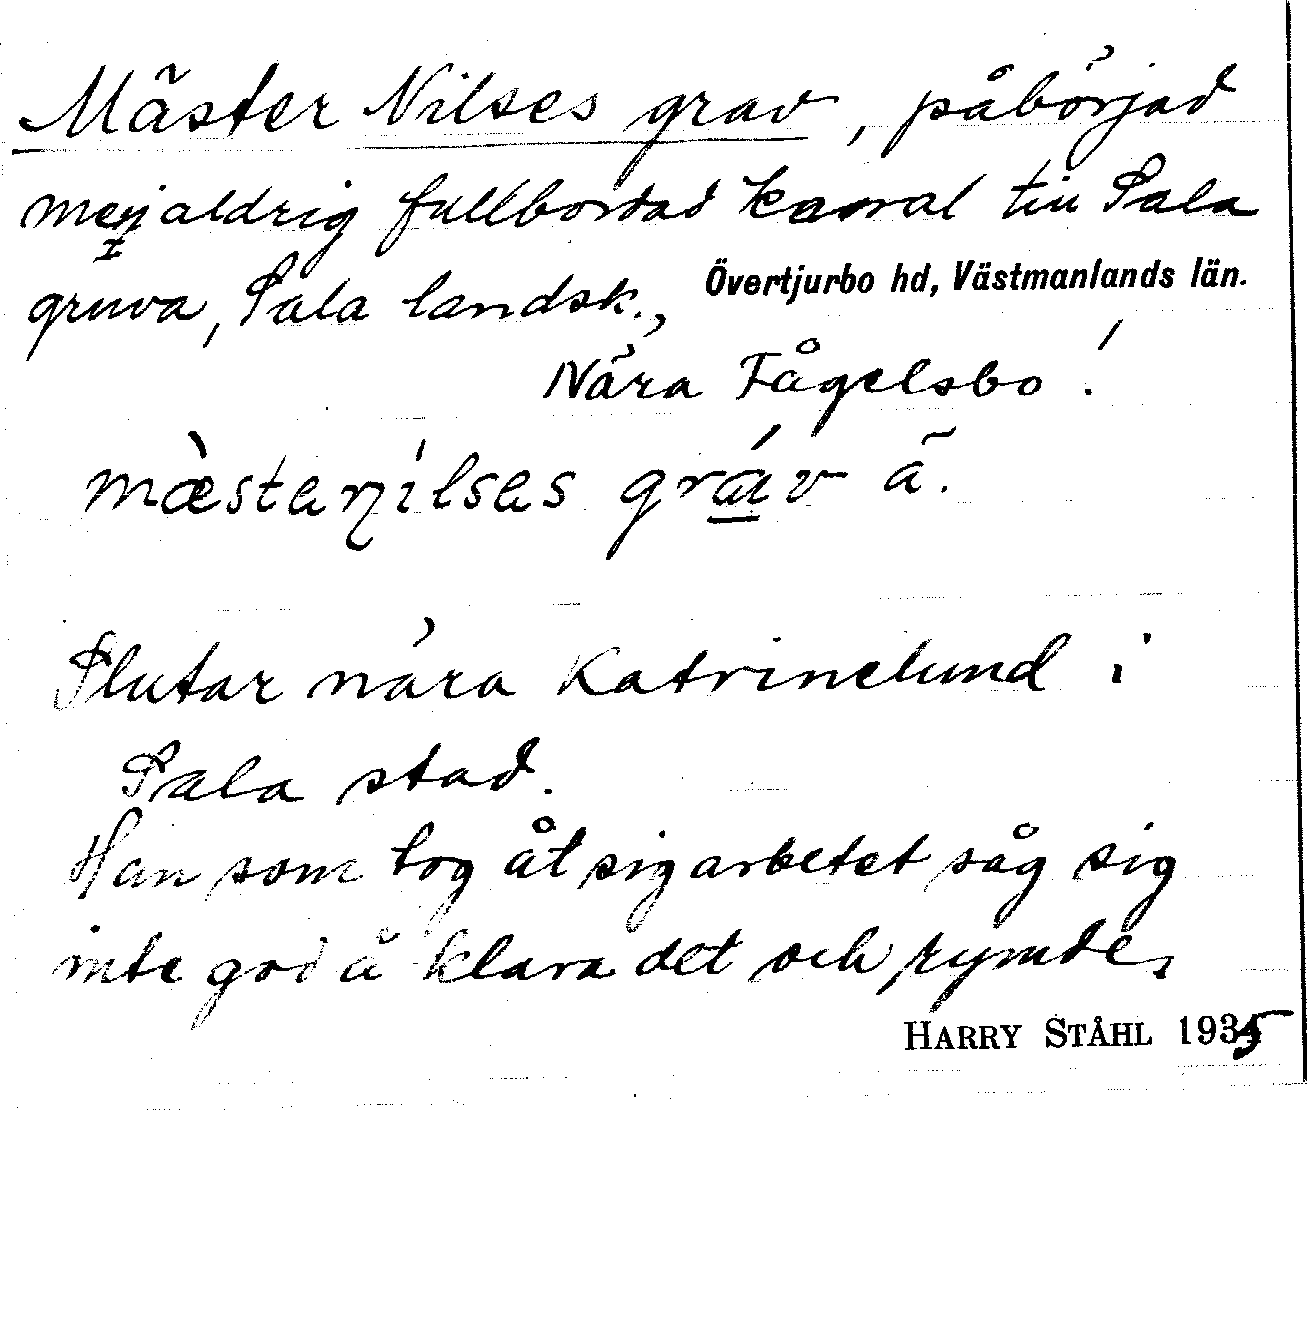 Mäster Nilses grav, påbörjad
men aldrig fullbordad kanal till Sala
gruva, Sala landsk., Övertjurbo hd, Västmanlands län.
Nära Fågelsbo!
Slutar nära Katrinelund i
Sala stad.
Han som tog åt sig arbetet såg sig
inte god å klara det och rymde.
HARRY STÅHL 1935